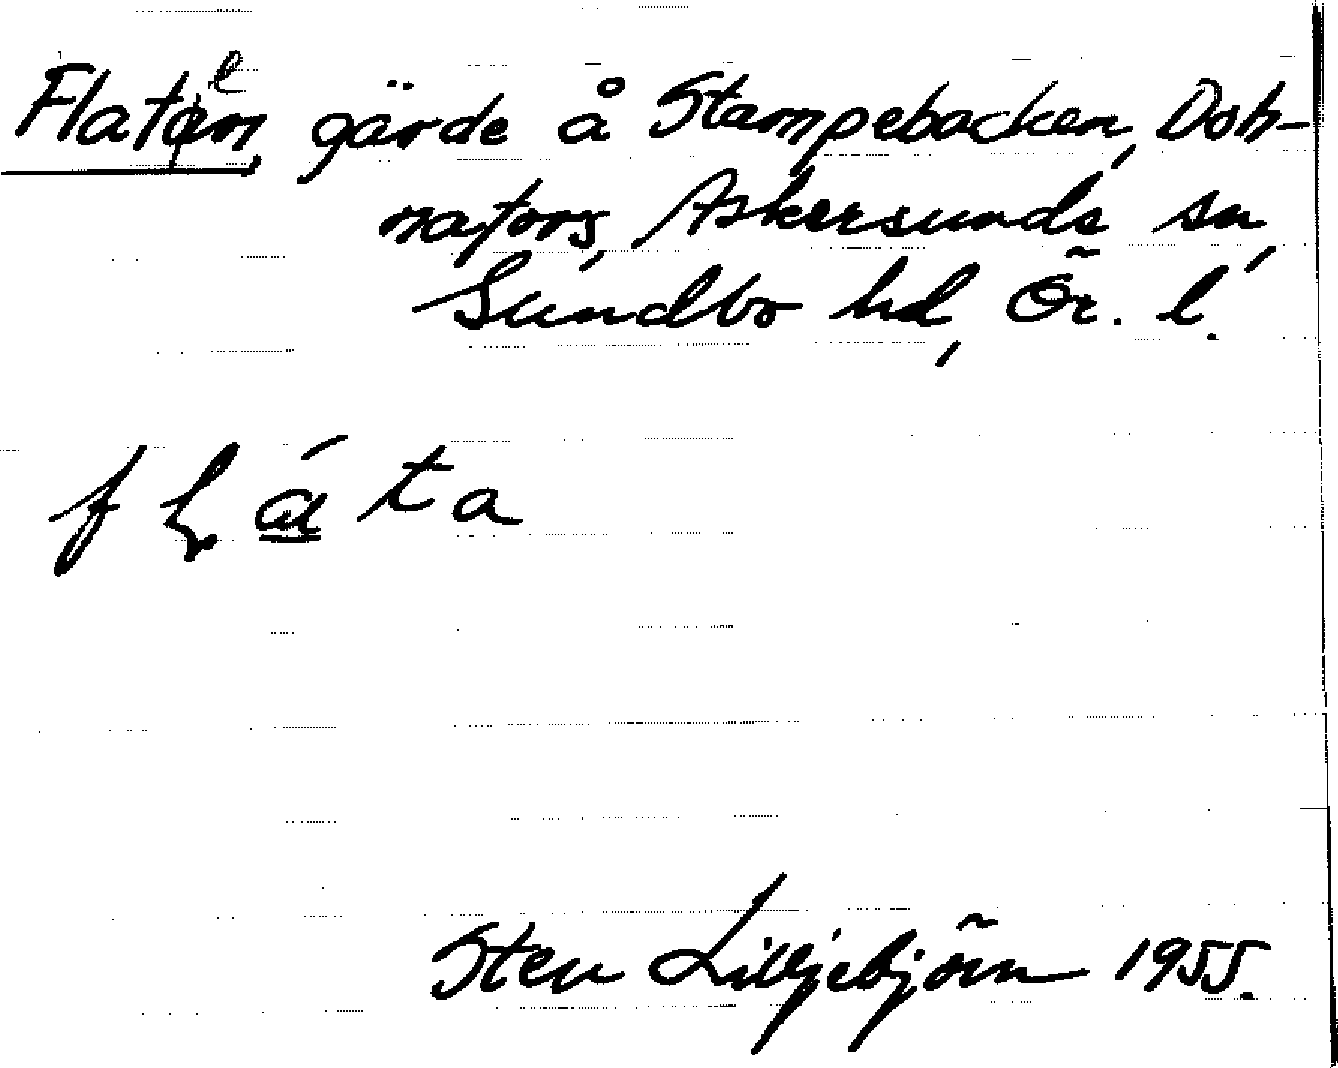 Flaten, gärde å Stampebacken, Doh-
nafors, Askersunds sn,
Sundbo hd, Ör. l.
f ɫ á̲ t a
Sten Lilljebjörn 1955.